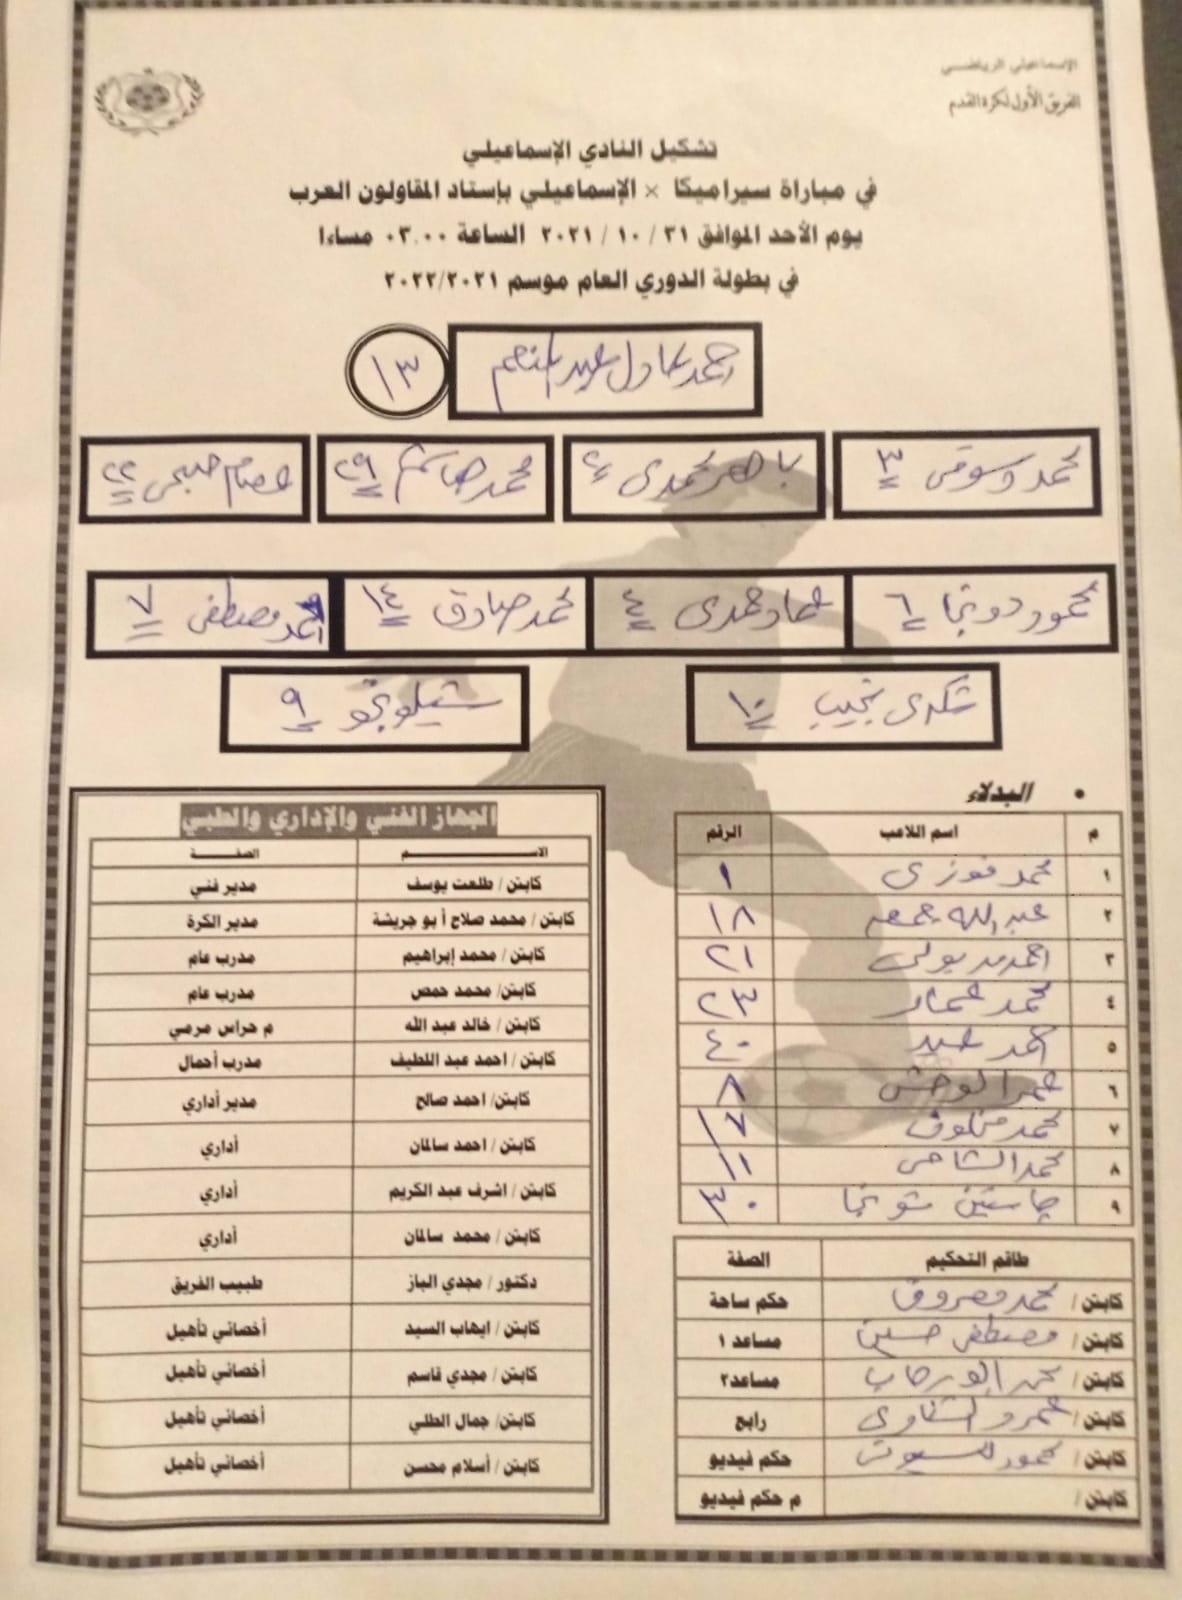 الإسماعيلي الرياضي
الفريق الأول لكرة القدم
تشكيل النادي الإسماعيلي
في مباراة سيراميكا × الإسماعيلي بإستاد المقاولون العرب
يوم الأحد الموافق ٣١ / ١٠ / ٢٠٢١ الساعة ٠٣.٠٠ مساءا
في بطولة الدوري العام موسم ٢٠٢٢/٢٠٢١
احمد عادل عبد المنعم ١٣
محمد دسوقى ٣
باهر محمدى ٢
محمد هاشم ٢٩
عصام صبحى ٢٢
محمود دونجا ٦
عماد حمدى ٤
محمد صادق ١٤
احمد مصطفى ٧
شكرى نجيب ١٠
شيلونجو ٩
• البدلاء
م اسم اللاعب الرقم
١ محمد فوزى ١
٢ عبد الله جمعه ١٨
٣ احمد مدبولى ٢١
٤ محمد عمار ٢٣
٥ احمد ٤٠
٦ عمر الوحش ٨
٧ محمد مخلوف ١٧
٨ محمد الشامى ١١
٩ جاستين شونجا ٣٠
طاقم التحكيم الصفة
كابتن / محمد معروف حكم ساحة
كابتن / مصطفى حسين مساعد ١
كابتن / ابو رحاب مساعد٢
كابتن / عمرو الشناوى رابع
كابتن / محمود حكم فيديو
كابتن / م حكم فيديو
الجهاز الفني والإداري والطبي
الاســـم الصفـــة
كابتن / طلعت يوسف مدير فني
كابتن / محمد صلاح أ بو جريشة مدير الكرة
كابتن / محمد إبراهيم مدرب عام
كابتن/ محمد حمص مدرب عام
كابتن / خالد عبد الله م حراس مرمي
كابتن / احمد عبد اللطيف مدرب أحمال
كابتن/ احمد صالح مدير أداري
كابتن / احمد سالمان أداري
كابتن / اشرف عبد الكريم أداري
كابتن / محمد سالمان أداري
دكتور / مجدي الباز طبيب الفريق
كابتن / ايهاب السيد أخصائي تأهيل
كابتن / مجدي قاسم أخصائي تأهيل
كابتن/ جمال الطلي أخصائي تأهيل
كابتن / أسلام محسن أخصائي تأهيل